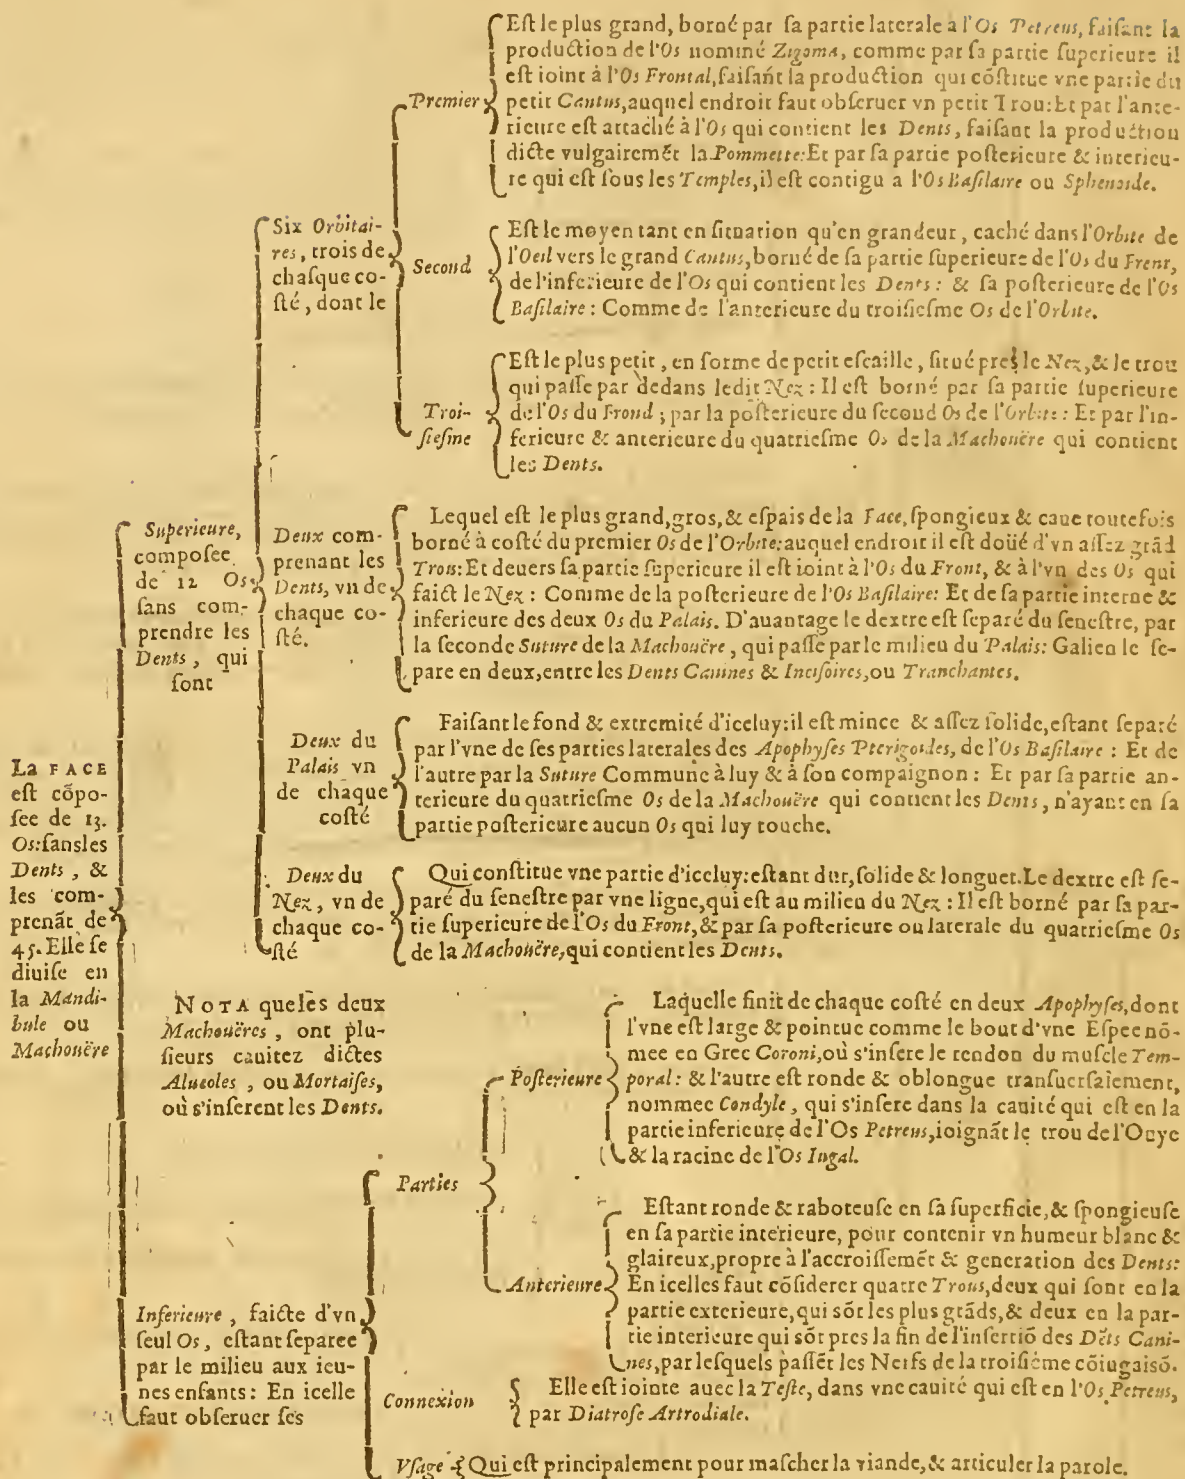 La FACE
est cõpo-
see de 13.
Os: sans les
Dents, &
les com-
prenãt de
45. Elle se
diuise en
la Mandi-
bule ou
Machouëre
Superieure,
composee
de 12 Os
sans com-
prendre les
Dents, qui
sont
Six Orbitai-
res, trois de
chasque co-
sté, dont le
Premier
Est le plus grand, borné par sa partie laterale a l'Os Petreus, faisant la
production de l'Os nommé Zigoma, comme par sa partie superieure il
est ioint à l'Os Frontal, faisant la production qui cõstitue vne partie du
petit Cantus, auquel endroit faut obseruer vn petit Trou: Et par l'ante-
rieure est attaché à l'Os qui contient les Dents, faisant la production
dicte vulgairemẽt la Pommette: Et par sa partie posterieure & interieu-
re qui est sous les Temples, il est contigu a l'Os Basilaire ou Sphenoide.
Second
Est le moyen tant en situation qu'en grandeur, caché dans l'Orbite de
l'Oeil vers le grand Cantus, borné de sa partie superieure de l'Os du Front,
de l'inferieure de l'Os qui contient les Dents: & sa posterieure de l'Os
Basilaire: Comme de l'anterieure du troisiesme Os de l'Orbite.
Troi-
siesme
Est le plus petit, en forme de petit escaille, situé pres le Nez, & le trou
qui passe par dedans ledit Nez: Il est borné par sa partie superieure
de l'Os du Frond; par la posterieure du second Os de l'Orbite: Et par l'in-
ferieure & anterieure du quatriesme Os de la Machouëre qui contient
les Dents.
Deux com-
prenant les
Dents, vn de
chaque co-
sté.
Lequel est le plus grand, gros, & espais de la Face, spongieux & caue toutefois
borné à costé du premier Os de l'Orbite: auquel endroit il est doüé d'vn assez grãd
Trou: Et deuers sa partie superieure il est ioint à l'Os du Front, & à l'vn des Os qui
faict le Nez: Comme de la posterieure de l'Os Basilaire: Et de sa partie interne &
inferieure des deux Os du Palais. D'auantage le dextre est separé du senestre, par
la seconde Suture de la Machouëre, qui passe par le milieu du Palais: Galien le se-
pare en deux, entre les Dents Canines & Incisoires, ou Tranchantes.
Deux du
Palais vn
de chaque
costé
Faisant le fond & extremité d'iceluy: il est mince & assez solide, estant separé
par l'vne de ses parties laterales des Apophyses Pterigoides, de l'Os Basilaire: Et de
l'autre par la Suture Commune à luy & à son compaignon: Et par sa partie an-
terieure du quatriesme Os de la Machouëre qui contient les Dents, n'ayant en sa
partie posterieure aucun Os qui luy touche.
Deux du
Nez, vn de
chaque co-
sté
Qui constitue vne partie d'iceluy: estant dur, solide & longuet. Le dextre est se-
paré du senestre par vne ligne, qui est au milieu du Nez: Il est borné par sa par-
tie superieure de l'Os du Front, & par sa posterieure ou laterale du quatriesme Os
de la Machouëre, qui contient les Dents.
NOTA que lès deux
Machouëres, ont plu-
sieurs cauitez dictes
Alueoles, ou Mortaises,
où s'inserent les Dents.
Inferieure, faicte d'vn
seul Os, estant separee
par le milieu aux ieu-
nes enfants: En icelle
faut obseruer ses
Parties
Posterieure
Laquelle finit de chaque costé en deux Apophyses, dont
l'vne est large & pointue comme le bout d'vne Espee nõ-
mee en Grec Coroni, où s'insere le tendon du muscle Tem-
poral: & l'autre est ronde & oblongue transuersalement,
nommee Condyle, qui s'insere dans la cauité qui est en la
partie inferieure de l'Os Petreus, ioignãt le trou de l'Ouye
& la racine de l'Os Iugal.
Anterieure
Estant ronde & raboteuse en sa superficie, & spongieuse
en sa partie interieure, pour contenir vn humeur blanc &
glaireux, propre à l'accroissemẽt & generation des Dents:
En icelles faut cõsiderer quatre Trous, deux qui sont en la
partie exterieure, qui sõt les plus grãds, & deux en la par-
tie interieure qui sõt pres la fin de l'insertiõ des Dẽts Cani-
nes, par lesquels passẽt les Nerfs de la troisiéme cõiugaisõ.
Connexion
Elle est iointe auec la Teste, dans vne cauité qui est en l'Os Petreus,
par Diatrose Artrodiale.
Vsage
Qui est principalement pour mascher la viande, & articuler la parole.